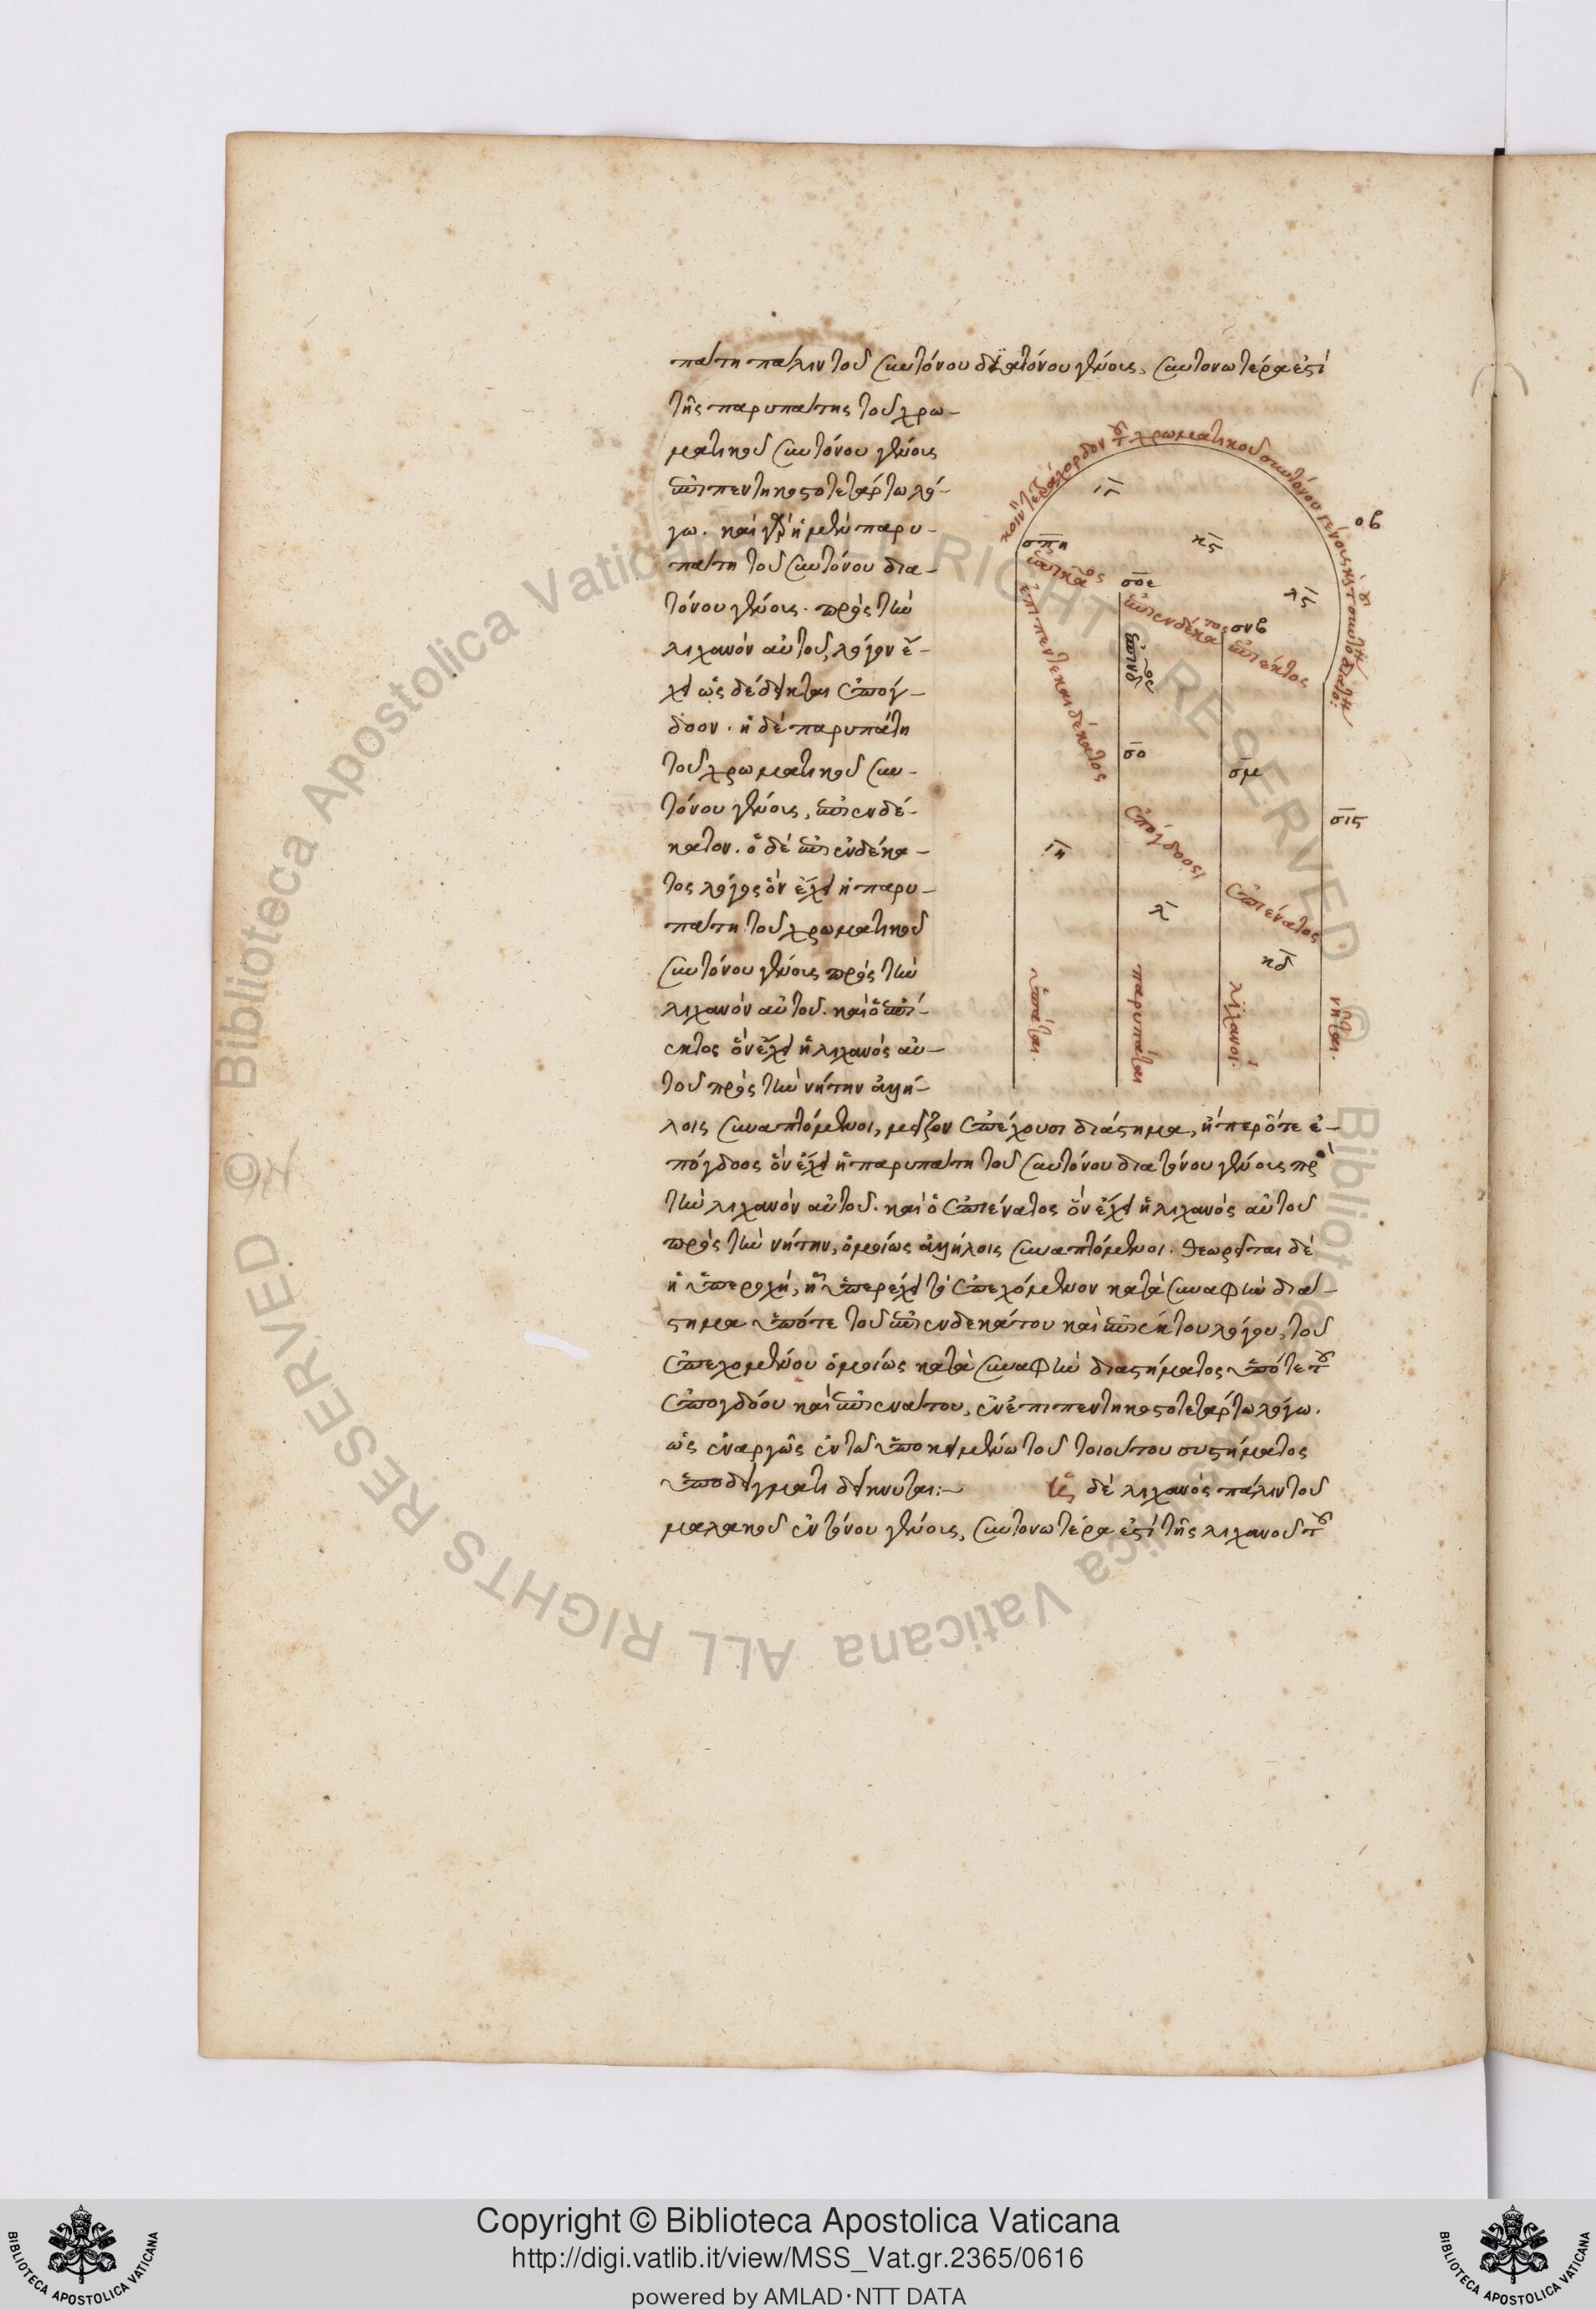 πάτη πάλιν τοῦ συντόνου διατόνου γένους, συντονωτέρα ἐστὶ
τῆς παρυπάτης τοῦ χρω-
ματικοῦ συντόνου γένους
ἐπιπεντηκοστοτετάρτω λό-
γω. καὶ γὰρ ἡ μὲν παρυ-
πάτη τοῦ συντόνου δια-
τόνου γένους. πρὸς τὴν
λιχανὸν αὐτοῦ, λόγον ἔ-
χει ὡς δέδεικται ἐπόγ-
δοον. ἡ δὲ παρυπάτη
τοῦ χρωματικοῦ συν-
τόνου γένους, ἐπιενδέ-
κατον. ὁ δὲ ἐπιενδέκα-
τος λόγος ὃν ἔχει ἡ παρυ-
πάτη τοῦ χρωματικοῦ
συντόνου γένους πρὸς τὴν
λιχανὸν αὐτοῦ. καὶ ὁ ἐπι-
έκτος ὃν ἔχει ἡ λιχανὸς αὐ-
τοῦ πρὸς τὴν νήτην ἀλλή-
λοις συναπτόμενοι, μεῖζον ἐπέχουσι διάστημα, ἤπερ ὅ τε ἐ-
πόγδοος ὃν ἔχει ἡ παρυπάτη τοῦ συντόνου διατόνου γένους πρὸς
τὴν λιχανὸν αὐτοῦ. καὶ ὁ ἐπιένατος ὃν ἔχει ἡ λιχανὸς αὐτοῦ
πρὸς τὴν νήτην, ὁμοίως ἀλλήλοις συναπτόμενοι. θεωρεῖται δὲ
ἡ ὑπεροχὴ, ἣ ὑπερέχει τὸ ἐπεχόμενον κατὰ συναφὴν διά-
στημα ὑπό τε τοῦ ἐπιενδεκάτου καὶ ἐπιέκτου λόγου, τοῦ
ἐπεχομένου ὁμοίως κατὰ συναφὴν διαστήματος ὑπό τε τοῦ
ἐπογδόου καὶ ἐπιενάτου, ἐν ἐπιπεντηκοστοτετάρτω λόγω.
ὡς ἐναργῶς ἐν τῶ ὑποκειμένω τοῦ τοιούτου συστήματος
ὑποδείγματι δείκνυται:— Ἡ δὲ λιχανὸς πάλιν τοῦ
μαλακοῦ ἐντόνου γένους, συντονωτέρα ἐστὶ τῆς λιχανοῦ τοῦ
κοινὸν τετράχορδον τοῦ χρωματικοῦ συντόνου γένους καὶ τοῦ συντόνου διατόνου:
ιγ
κς
λς
οβ
σπη
σοε
σνβ
ἐπιενδέκατος
ἐπιέκτος
ἐπιπεντεκαιδέκατος
σο
σμ
σις
ἐπόγδοος
ἐπιένατος
ιη
λ
κδ
ὑπάται.
παρυπάται
λιχανοί.
νῆται.
Copyright © Biblioteca Apostolica Vaticana
http://digi.vatlib.it/view/MSS_Vat.gr.2365/0616
powered by AMLAD·NTT DATA